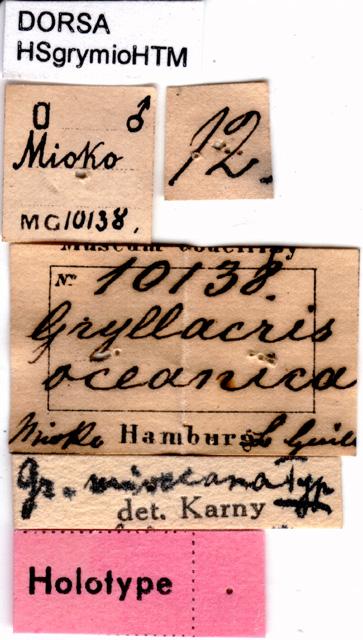 DORSA
HSgrymioHTM
♂
Mioko
MG10138.
12.
Museum Godeffroy
No. 10138.
Gryllacris
oceanica
Mioko Hamburg
Gr. miocana Typ
det. Karny
Holotype